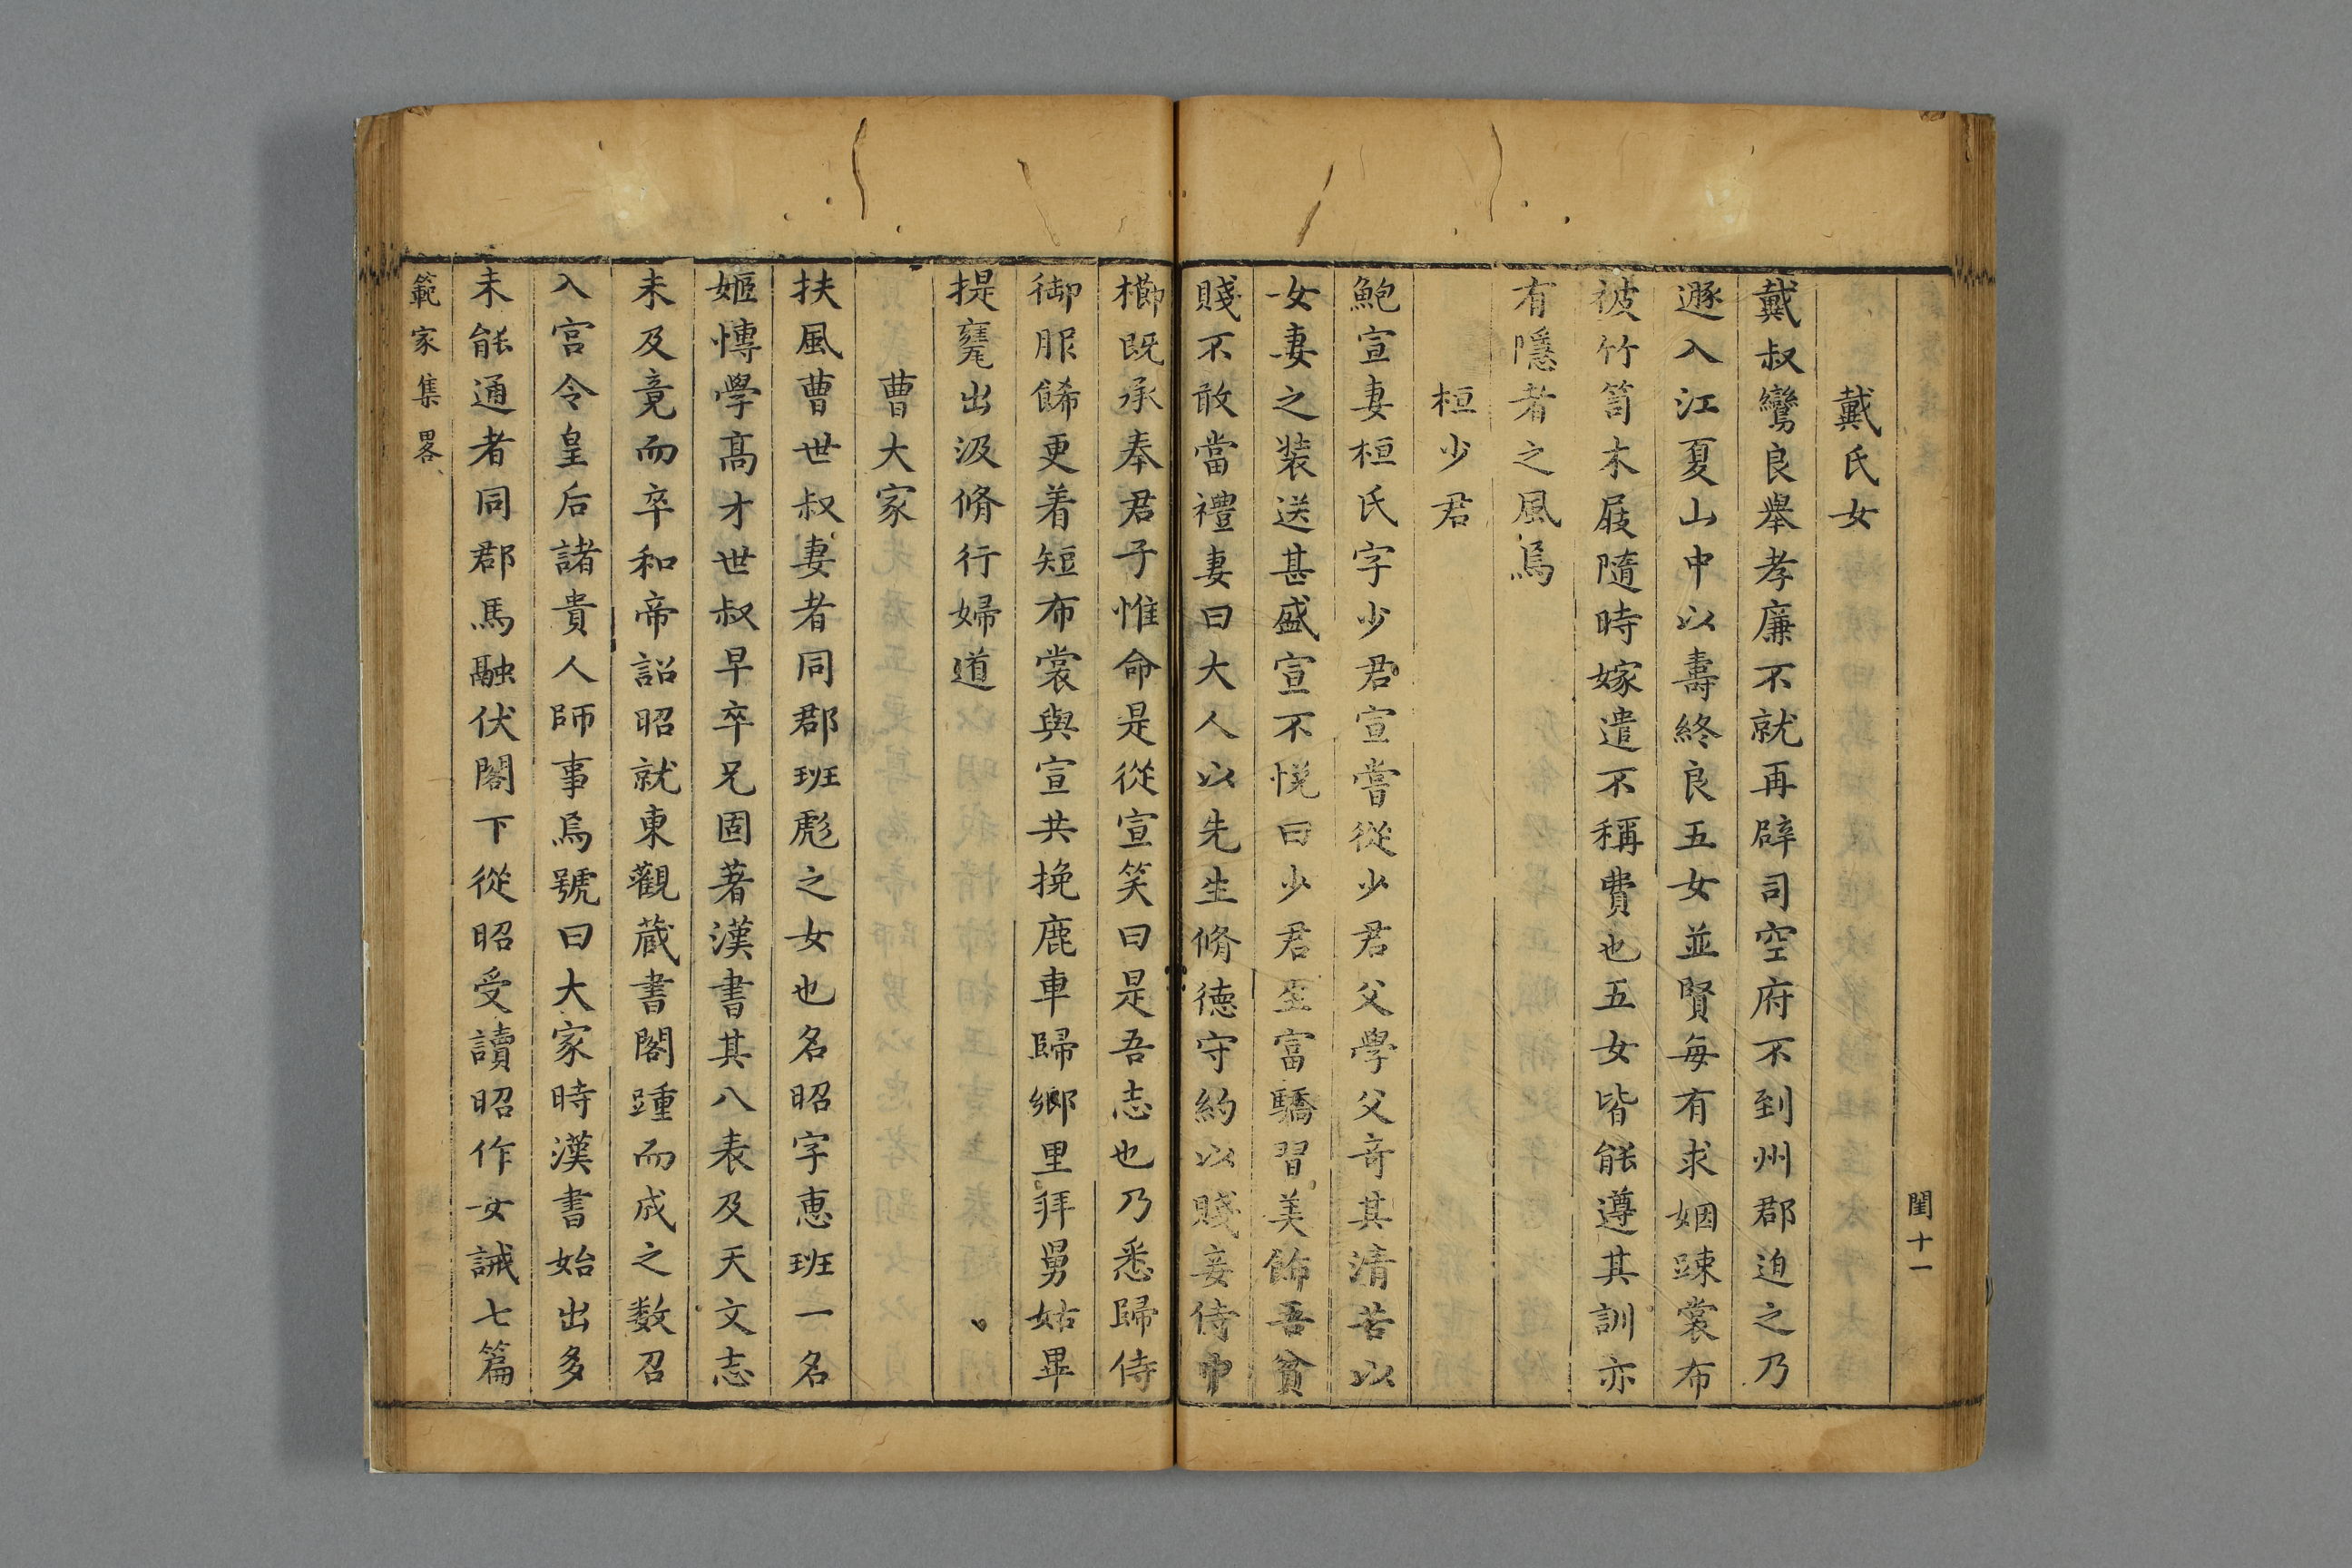 閨十一
戴氏女
戴叔鸞良舉孝廉不就再辟司空府不到州郡迫之乃
遯入江夏山中以壽終良五女並賢每有求姻踈裳布
被竹笥木屐隨時嫁遣不稱費也五女皆能遵其訓亦
有隱者之風焉
桓少君
鮑宣妻桓氏字少君宣嘗從少君父學父竒其清苦以
女妻之装送甚盛宣不悅曰少君生富驕習美飾吾貧
賤不敢當禮妻曰大人以先生脩德守約以賤妾侍巾
櫛既承奉君子惟命是從宣笑曰是吾志也乃悉歸侍
御服餙更着短布裳與宣共挽鹿車歸鄉里拜舅姑畢
提甕出汲脩行婦道
曹大家
扶風曹世叔妻者同郡班彪之女也名昭字惠班一名
姬愽學髙才世叔早卒兄固著漢書其八表及天文志
未及竟而卒和帝詔昭就東觀蔵書閣踵而成之数召
入宮令皇后諸貴人師事焉號曰大家時漢書始出多
未能通者同郡馬融伏閣下從昭受讀昭作女誡七篇
範家集畧